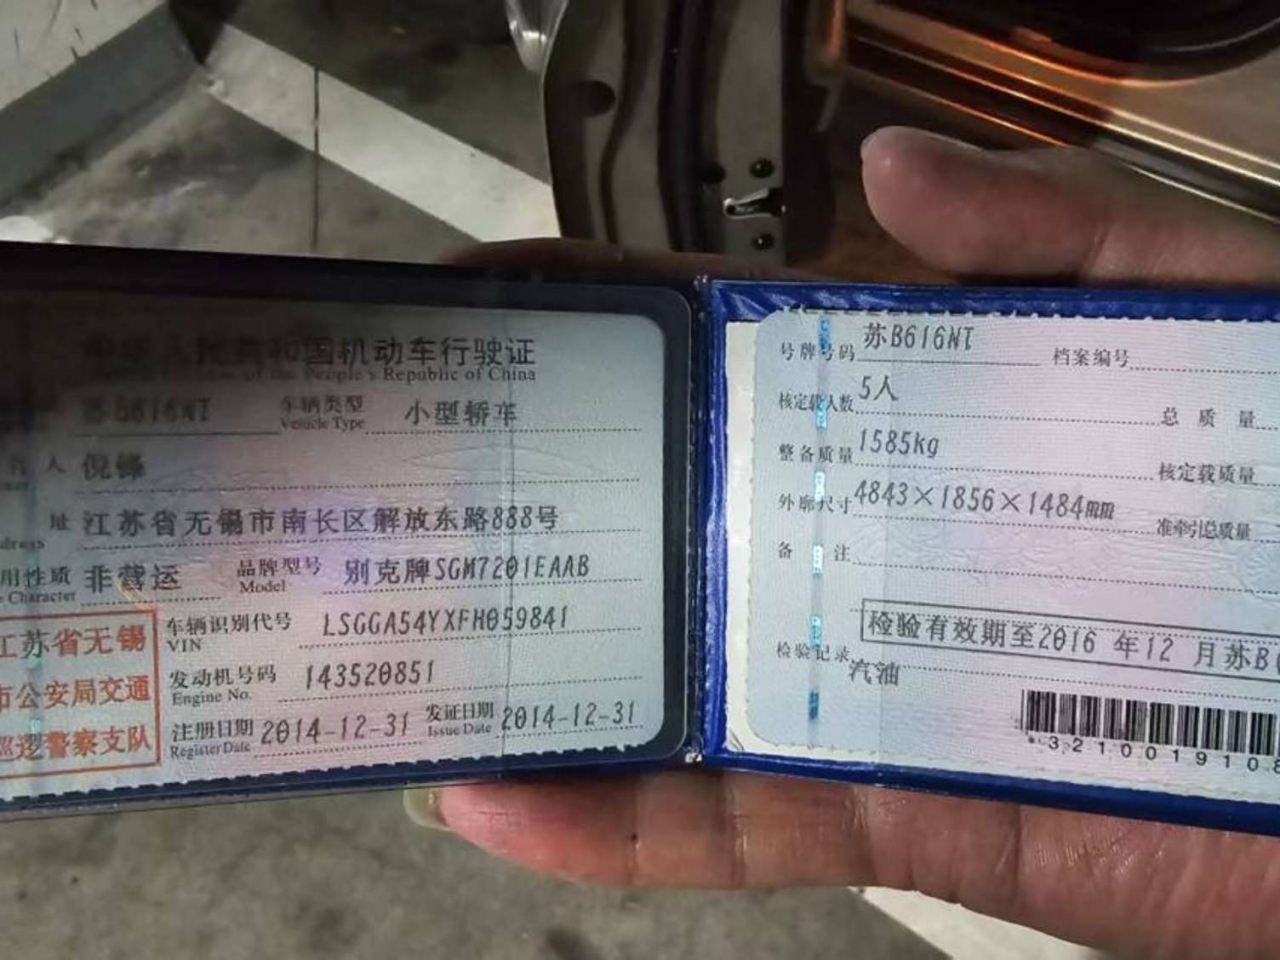 国机动车行驶证
of the People's Republic of China
苏B616NT 车辆类型 Vehicle Type 小型轿车
人 倪锋
址 江苏省无锡市南长区解放东路888号
用性质 Character 非营运 品牌型号 Model 别克牌SGM7201EAAB
江苏省无锡
市公安局交通
巡逻警察支队
车辆识别代号 VIN LSGGA54YXFH059841
发动机号码 Engine No. 143520851
注册日期 Register Date 2014-12-31 发证日期 Issue Date 2014-12-31
号牌号码 苏B616NT 档案编号
核定载人数 5人 总质量
整备质量 1585kg 核定载质量
外廓尺寸 4843×1856×1484mm 准牵引总质量
备注
检验有效期至2016 年12 月苏B
检验记录 汽油
321001910